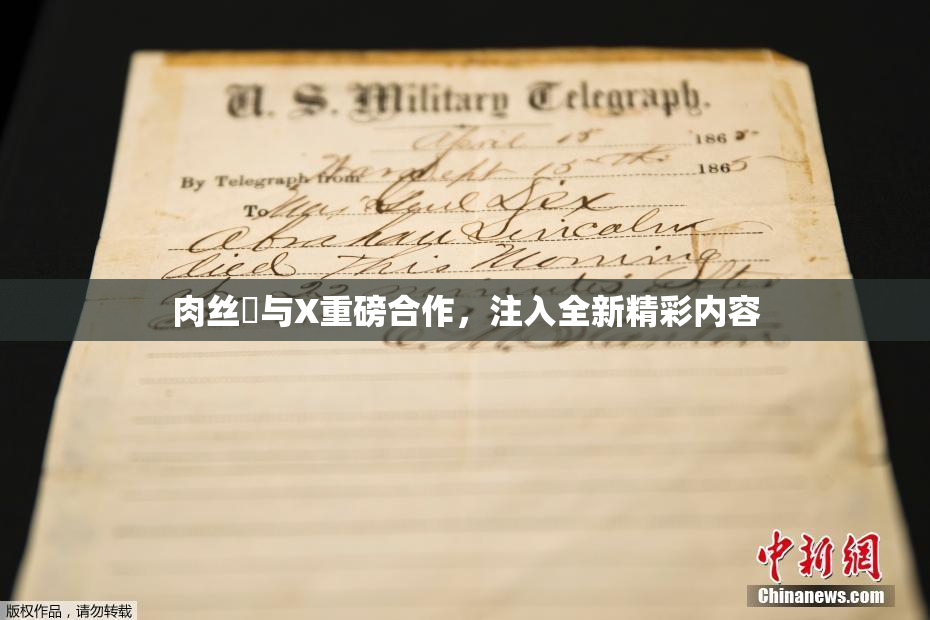 U. S. Military Telegraph.
April 15 1865
By Telegraph from War Dept 15th 1865
To Maj Genl Dix
Abraham Lincoln
died This Morning
at 22 minutes after
肉丝与X重磅合作，注入全新精彩内容
E. M. Stanton
中新网
Chinanews.com
版权作品，请勿转载